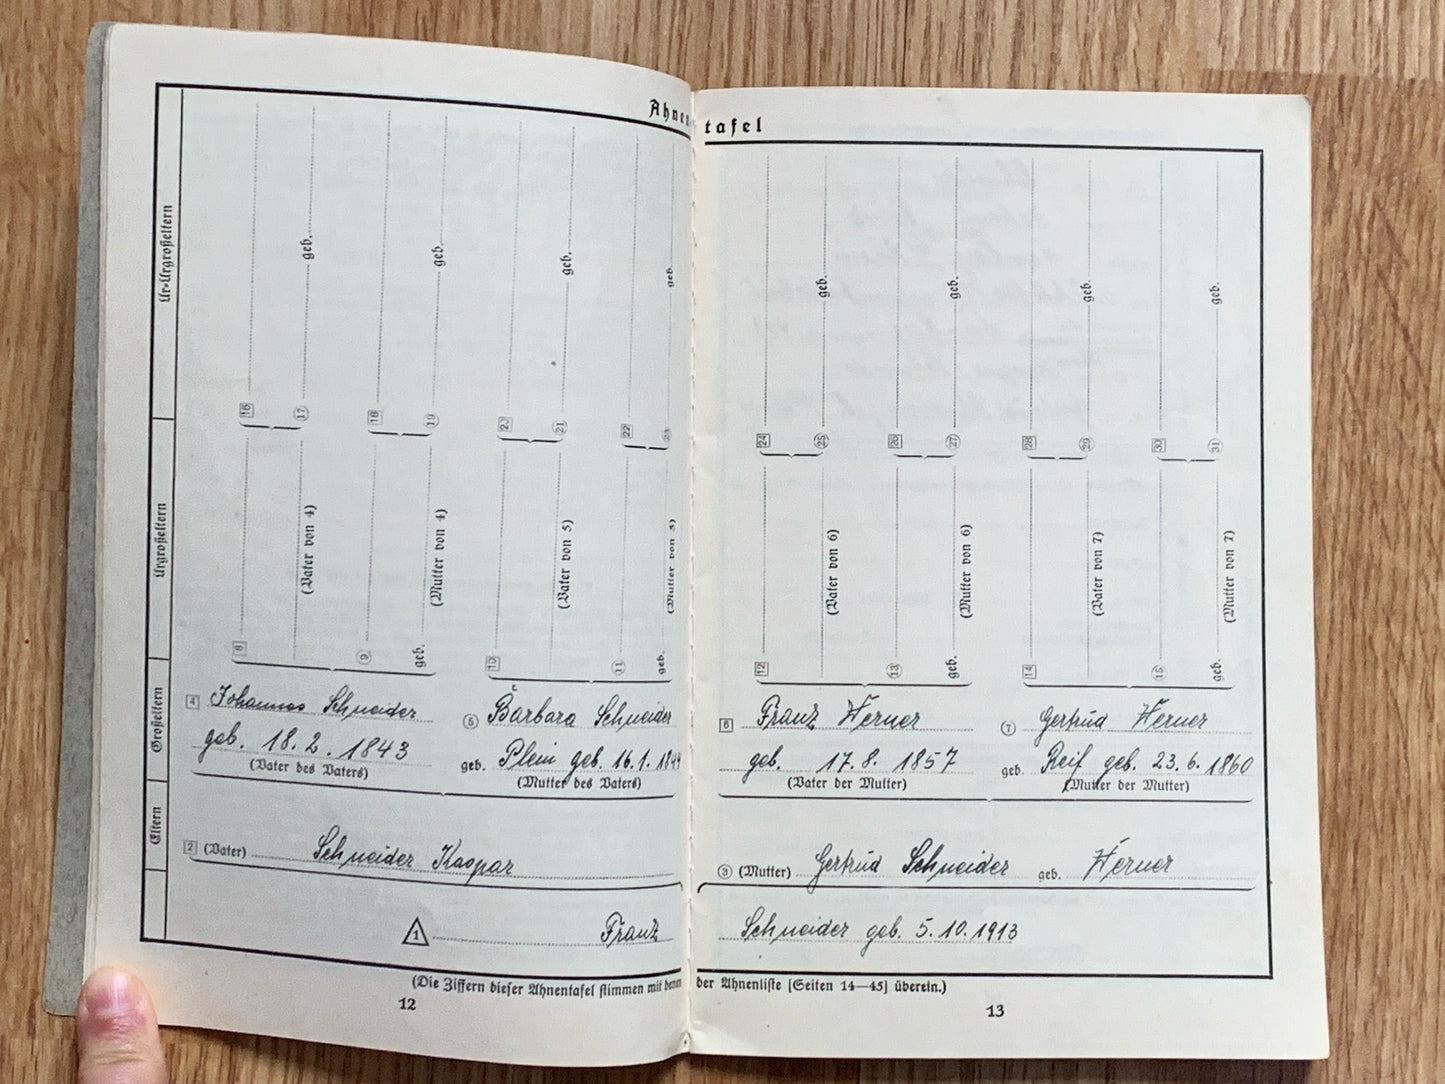 Ahnentafel
Ur-Urgroßeltern
16
17
geb.
18
19
geb.
20
21
geb.
22
23
geb.
24
25
geb.
26
27
geb.
28
29
geb.
30
31
geb.
Urgroßeltern
8
(Vater von 4)
9
geb.
(Mutter von 4)
10
(Vater von 5)
11
geb.
(Mutter von 5)
12
(Vater von 6)
13
geb.
(Mutter von 6)
14
(Vater von 7)
15
geb.
(Mutter von 7)
Großeltern
4 Johannes Schneider
geb. 18. 2. 1843
(Vater des Vaters)
5 Barbara Schneider
geb. Plein geb. 16. 1. 1844
(Mutter des Vaters)
6 Franz Herner
geb. 17. 8. 1857
(Vater der Mutter)
7 Gertrud Herner
geb. Reif geb. 23. 6. 1860
(Mutter der Mutter)
Eltern
2 (Vater) Schneider Kaspar
3 (Mutter) Gertrud Schneider geb. Herner
1 Franz Schneider geb. 5. 10. 1913
(Die Ziffern dieser Ahnentafel stimmen mit denen der Ahnenliste [Seiten 14—45] überein.)
12
13